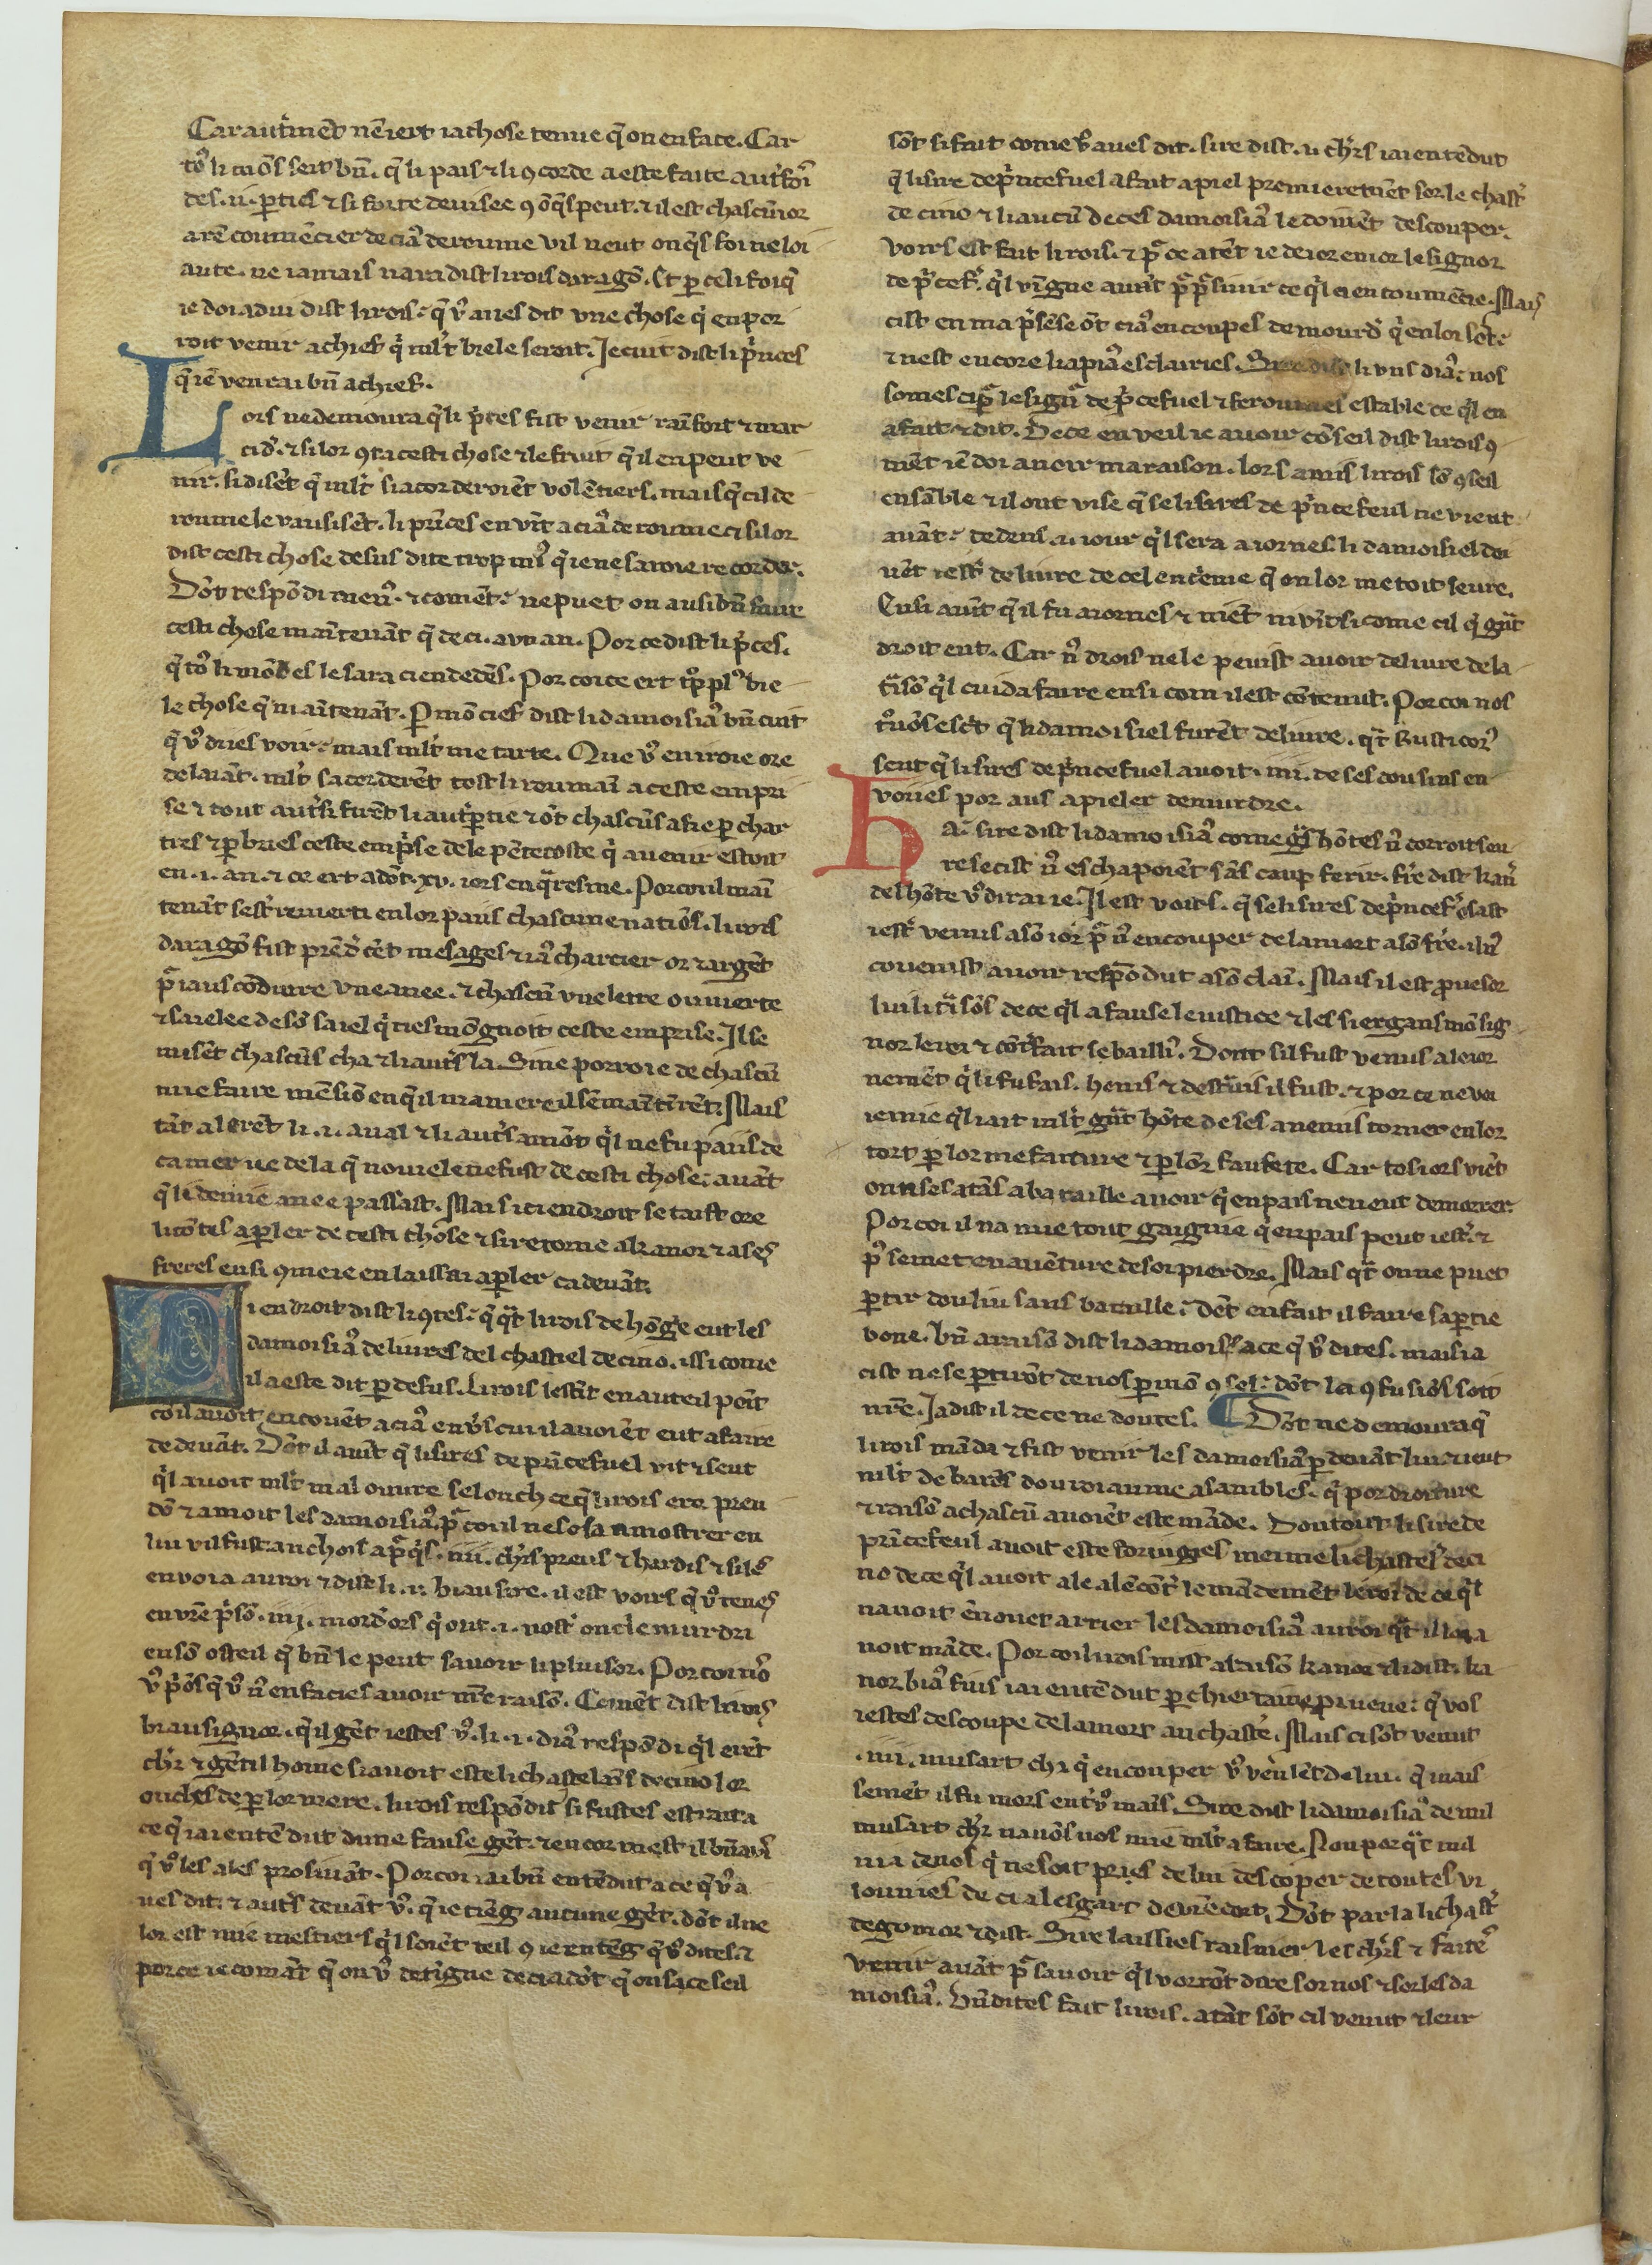 Car aut̾mēt nē iert ia chose tenue q̄ on en face. Car
toꝰ li mōs seit bn̄. q̄ li pais ⁊ li ꝯcorde a este faite aut̾foi
des .ii. ꝑties ⁊ si forte deuisee ꝯ ō q̄s peut. ⁊ il est chascū ior
a rēcoumēcier de ciaꝰ de roume vil neut onq̄s foi ne loi
aute. ne iamais naura dist li rois daragō. Et ꝑ celi foi q̄
ie doi a diu dist li rois. q̄ vꝰ aues dit vne chose q̄ en por
roit venir a chief q̄ ml̾t biele seroit. Ie cuit dist li p̾nces
q̄ iē venrai bn̄ a chief.
Lors ne demoura q̄ li p̾ces fist venir rainfort ⁊ mar
cidꝰ. ⁊ si lor ꝯta cesti chose ⁊ le fruit q̄ il en peut ve
nir. si disēt q̄ ml̾t si acorderoiēt volētiers. mais q̄ cil de
roume le vausisēt. li prīces en vīt a ciaꝰ de roume ⁊ si lor
dist cesti chose desus dite trop miꝰ q̄ ie ne saroie recorder.
Dōt respōdi meꝰ. ⁊ comēt. ne puet on ausi bn̄ faire
cesti chose maītenāt q̄ de ci. a vn an. Por ce dist li p̾ces.
q̄ toꝰ li mōdes le sara ciendedēs. Por coi ce ert tꝓ plꝰ bie
le chose q̄ maītenāt. Ꝑ mō cief dist li damoisiaꝰ bn̄ cuit
q̄ vꝰ dites voir. mais ml̾t me tarte. Que vꝰ en iroie ore
delaiāt. ml̾t sacorderēt tost li roumaī a ceste empri
se ⁊ tout aut̾si furēt li aut̾ ꝑtie ⁊ ōt chascūs afie ꝑ char
tres ⁊ ꝑ bries ceste emp̾se de le pētecoste q̄ a venir estoit
en .i. an. ⁊ ce ert adōt .xv. iors en q̄resme. Por coi il mai
tenāt sest̾ reuerti en lor pais chascune natiōs. li rois
daragō fist prēdꝰ cēt mesages ⁊ iaꝰ charcier or ⁊ argēt
pꝰ iaus cōduire vne anee. ⁊ chascū vne letre ouuerte
⁊ saielee de sō saiel q̄ tiesmōgnoit ceste emprise. Il se
misēt chascūs cha ⁊ li aut̾s la. Si ne porroie de chascū
mie faire mēsiō en q̄il maniere il sē maītirēt. Mais
tāt alerēt li .i. aual ⁊ li aut̾s amōt q̄l ne fu pais de
ca mer ne de la q̄ nouiele ne fust de cesti chose. auāt
q̄ li demie anee passast. Mais ici endroit se taist ore
li cōtes a ꝑler de cesti chose ⁊ si retorne a kanor ⁊ a ses
freres ensi ꝯme ie en laissai a ꝑler ca deuāt.
Ci endroit dist li ꝯtes. q̄ q̄t li rois de hōg̾e eut les
damoisiaꝰ deliures del chastiel de cino. issi come
il a este dit ꝑ desus. Li rois lesēt en auteil poīt
cō il auoit en couēt a ciaꝰ enu̾s cui il auoiēt eut afaire
de deuāt. Dōt il auīt q̄ li sires de prīcefuel vit ⁊ seut
q̄l auoit ml̾t mal ouure selonch ce q̄ li rois ere preu
dō ⁊ amoit les damoisiaꝰ. pꝰ coi il ne sosa amostrer en
lui vil fust anchois apꝰ q̄s .iiii. ch̾rs preus ⁊ hardis ⁊ si les
enuoia au roi ⁊ dist li .i. biau sire. il est voirs q̄ vꝰ tenes
en vr̄e p̾sō .iiij. mordꝰors q̄ ont .i. nost̾ oncle murdri
en sō osteil q̄ bn̄ le peut sauoir li pluisor. Por coi noꝰ
vꝰ p̾ōs q̄ vꝰ nꝰ en facies auoir nr̄e raisō. Comēt dist li rois
biau signor. q̄il gēt iestes vꝰ. li .i. diaꝰ respōdi q̄l erēt
ch̾r ⁊ gētil home si auoit este li chastelaīs de cino lor
oncles de ꝑ lor mere. li rois respōdit si fustes estraita
ce q̄ iai entēdut dune fause gēt. ⁊ encor mest il bn̄ auis
q̄ vꝰ les ales prosiuāt. Por coi iai bn̄ entēdut a ce q̄ vꝰ a
ues dit. ⁊ aut̾s deuāt vꝰ. q̄ ie tiēg aucune gēt. dōt il ne
lor est mie mestiers q̄l soiēt teil ꝯ ie entēg q̄ vꝰ dites. ⁊
por ce ie comāt q̄ on vꝰ detīgne de ci adōt q̄ on sace seil
sōt si fait come vꝰ aues dit. sire dist .i. ch̾rs iai entēdut
q̄ li sire de p̾ncefuel a fait apiel premieremēt sor le chast̾
de cino ⁊ li aucū de ces damoisiaꝰ le doiuēt descouper.
voirs est fait li rois. ⁊ pꝰ ce atēt ie de ior en ior le signor
de p̾cefꝰ. q̄l viēgne auāt pꝰ ꝑsiuir ce q̄l a encoumēcie. Mais
cist en ma p̾sēse ōt ciaꝰ encoupes de mourdꝰ q̄ en loi sōt.
⁊ nest encore li apiaꝰ esclairies. Sire dist li vns diaꝰ. nos
somes ci pꝰ le signꝰ de p̾cefuel ⁊ ferommes estable ce q̄l en
a fait ⁊ dit. De ce en veil ie auoir cōseil dist li rois ꝯ
mēt iē doi auoir ma raison. lors a mis li rois sō ꝯseil
ensāble ⁊ il ont vise q̄ se li sires de p̾ncefeul ne vient
auāt. dedens .i. iour q̄l sera aiornes. li damoisiel doi
uēt iest̾ deliure de cel encieme q̄ on lor metoit seure.
Ensi auīt q̄ il fu aiornes ⁊ niēt ni vīt si come cil q̄ gn̄t
droit eut. Car nꝰ drois ne le peuist auoir deliure de la
t̾isō q̄l cuida faire ensi com il est cōtenut. Por coi nos
t̾uōs escrit q̄ li damoisiel furēt deliure. q̄t Rusticorꝰ
seut q̄ li sires de p̾ncefuel auoit .iiii. de ses cousins en
voies por aus apieler de murdre.
Ha. sire dist li damoisiaꝰ come gn̄s hōtes nꝰ corroit seu
re se cist nꝰ eschapoiēt sās caup ferir. fr̄e dist kanꝰ
del hōte vꝰ dirai ie. Il est voirs. q̄ se li sires de p̾ncefꝰ osast
iest̾ venus a sō ior pꝰ nꝰ encouper de la mort a sō fr̄e. il nꝰ
couenist auoir respōdut a sō claī. Mais il est ꝓues or
lui li t̾isōs de ce q̄l a fause le iustice ⁊ les siergans mō sig
nor le roi ⁊ cōt̾fait se bailliꝰ. Dont sil fust venus a le ior
nemēt q̄ li fu fais. honis ⁊ dest̾uis il fust. ⁊ por ce ne voi
ie mie q̄l iait ml̾t gn̄t hōte de ses anemis torner en lor
tort ꝑ lor mefaiture ⁊ ꝑ lōr faufete. Car tos iors viēt
on a ses atās a bataille auoir q̄ en pais ne veut demorer.
Por coi il na mie tout gaignie q̄ en pais peut iest̾. ⁊
pꝰ se met en auēture de soi pierdre. Mais q̄t on ne puet
ꝑtir dou liu sans bataille. dōt en fait il faire sa ꝑtie
bone. bn̄ auisō dist li damoisꝰ a ce q̄ vꝰ dites. mais ia
cist ne se ꝑtirōt de nos ꝑ mō ꝯsel. dōt la ꝯfusiōs soit
nr̄e. Ia dist il de ce ne doutes. Dōt ne demoura q̄
li rois māda ⁊ fist venir les damoisiaꝰ ꝑ deuāt lui. ⁊ ieut
ml̾t de barōs dou roiaume asambles. q̄ por droiture
⁊ raisō a chascū auoiēt este māde. Dontout li sire de
prīcefeul auoit este foriugies meime li chastesꝰ de ci
no de ce q̄l auoit ale alēcōt̾ le mādemēt le roi de ce q̄l
nauoit ēuoiet arrier les damoisiaꝰ au roi q̄t il li ora
uoit māde. Por coi li rois mist a raisō kanor ⁊ li dist. ka
nor biaꝰ fuis iai entēdut ꝑ chiertaine prueue. q̄ vos
iestes descoupe de la mort au chasteꝰ. Mais ci sōt venut
.iiii. musart ch̾r q̄ encouper vꝰ vēlēt de lui. q̄ mais
semēt il fu mors ent̾ voꝰ maīs. Sire dist li damoisiaꝰ de mil
musart ch̾r nauōs nos mie ml̾t afaire. Non porq̄t nul
ni a de nos q̄ ne soit pries de lui descoper de toutes vi
lounies de ci al esgart de vr̄e cort. Dōt parla li chast̾
de gomor ⁊ dist. Sire laissies raisnier les ch̾rs ⁊ faites
venir auāt pꝰ sauoir q̄l vorrōt dire sor nos ⁊ sor les da
moisiaꝰ. bn̄ dites fait li rois. atāt sōt cil venut ⁊ leur